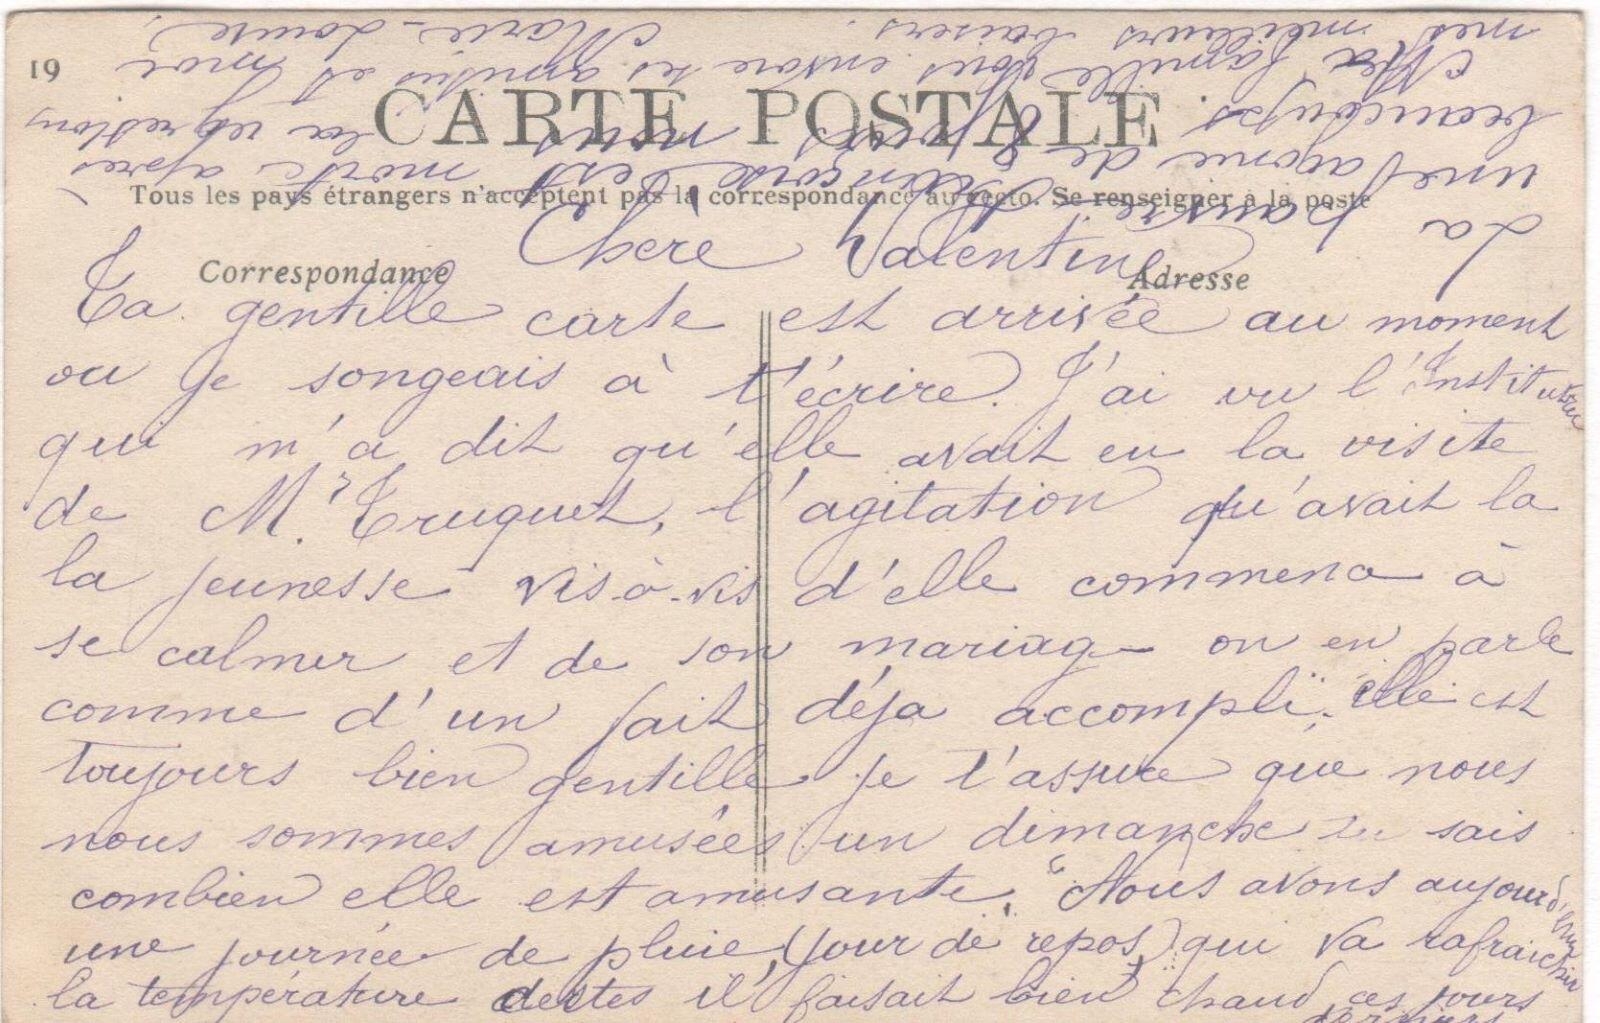 19
CARTE POSTALE
Tous les pays étrangers n'acceptent pas la correspondance au recto. Se renseigner à la poste
Correspondance
Adresse
Chère Valentine
Ta gentille carte est arrivée au moment
ou je songeais à t'écrire. J'ai vu l'Institutrice
qui m'a dit qu'elle avait eu la visite
de Mr Truquet, l'agitation qu'avait la
la jeunesse vis-à-vis d'elle commenca à
se calmer et de son mariage on en parle
comme d'un fait déja accompli. elle est
toujours bien gentille je t'assure que nous
nous sommes amusées un dimanche tu sais
combien elle est amusante. Nous avons aujourd'hui
une journée de pluie, (jour de repos) qui va rafraichir
la température certes il faisait bien chaud ces jours
derniers
La pauvre est morte après
une agonie de 8 jours nous la regrettons
beaucoups
Ma famille vous envoie ses amitiés et moi
mes meilleurs baisers.
Marie-Louise